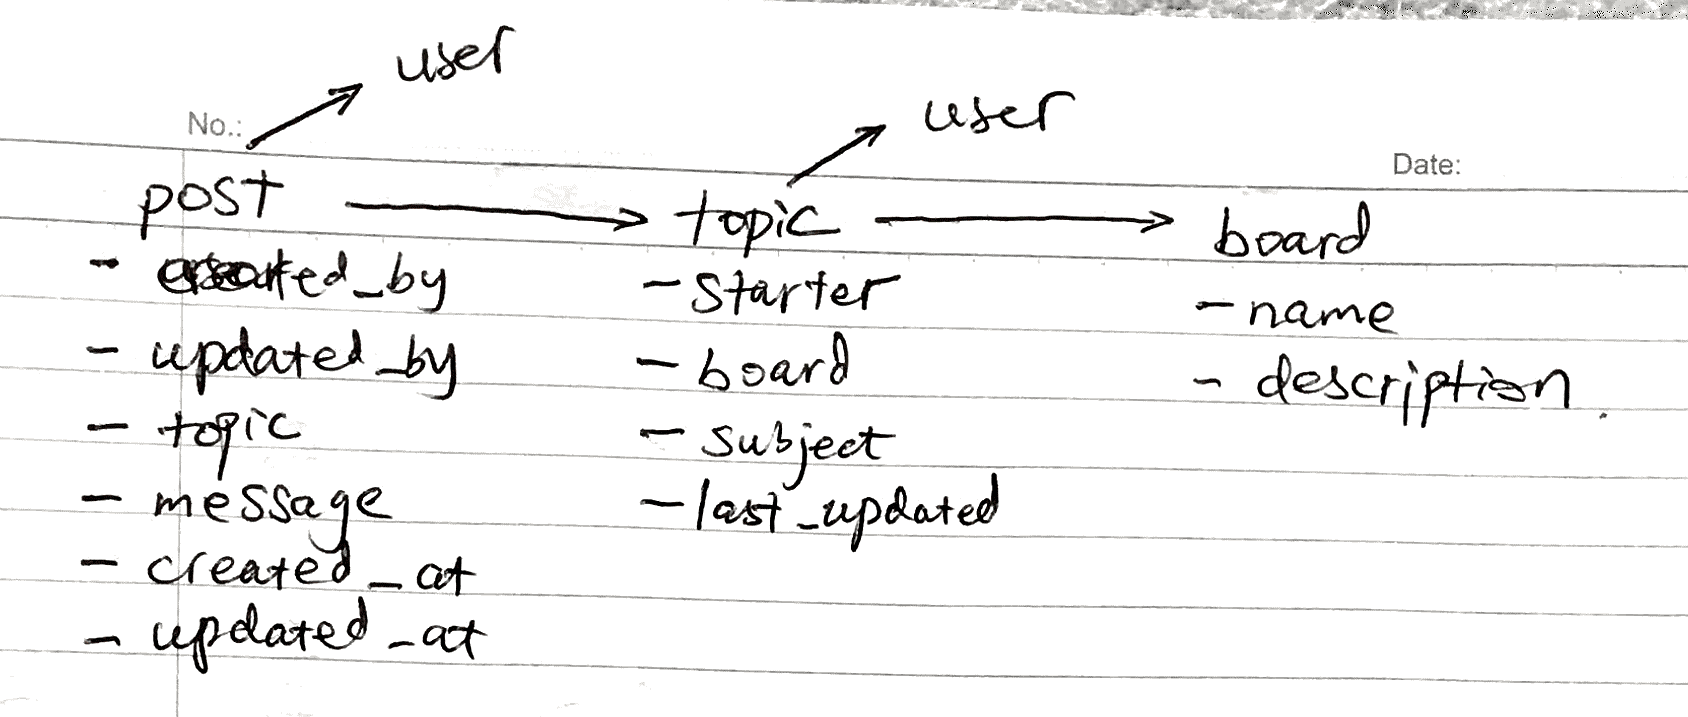 user
user
No.:
Date:
post
topic
board
- created_by
- updated_by
- topic
- message
- created_at
- updated_at
- starter
- board
- subject
- last_updated
- name
- description.